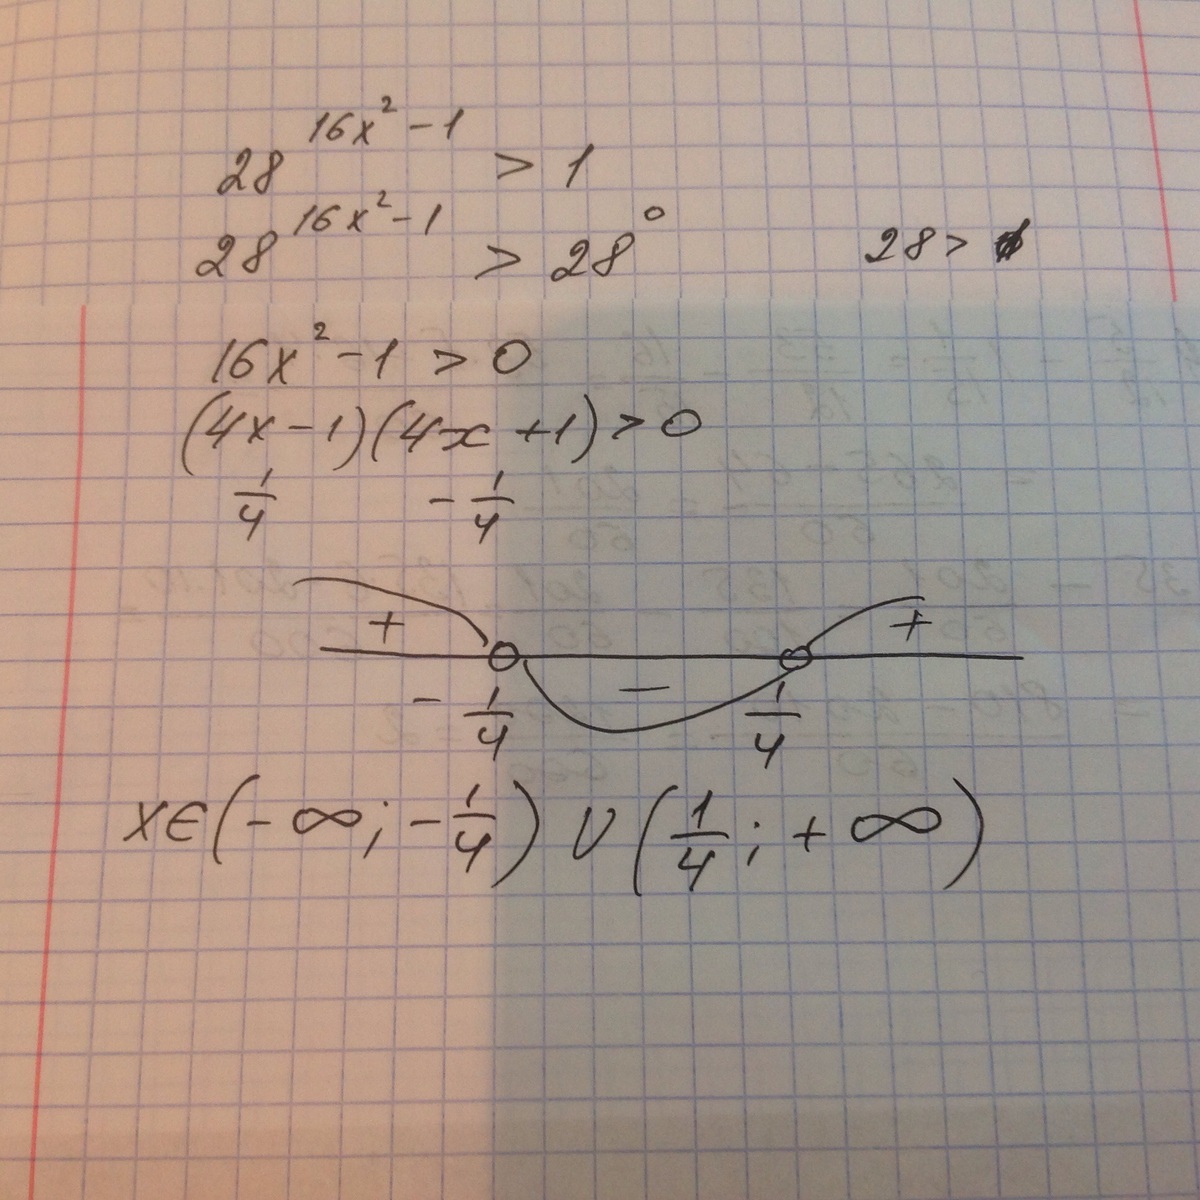 28^(16x² - 1) > 1
28^(16x² - 1) > 28⁰ 28 >
16x² - 1 > 0
(4x - 1)(4x + 1) > 0
1/4 - 1/4
+ - +
- 1/4 1/4
x ∈ (- ∞; - 1/4) ∪ (1/4; + ∞)